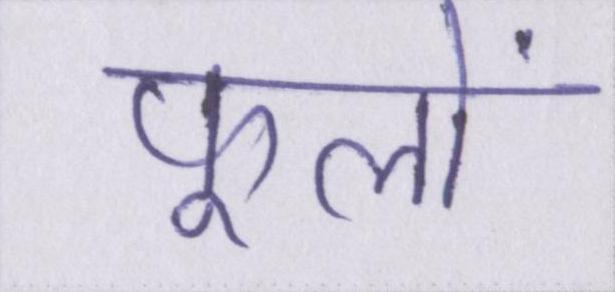 फूलों